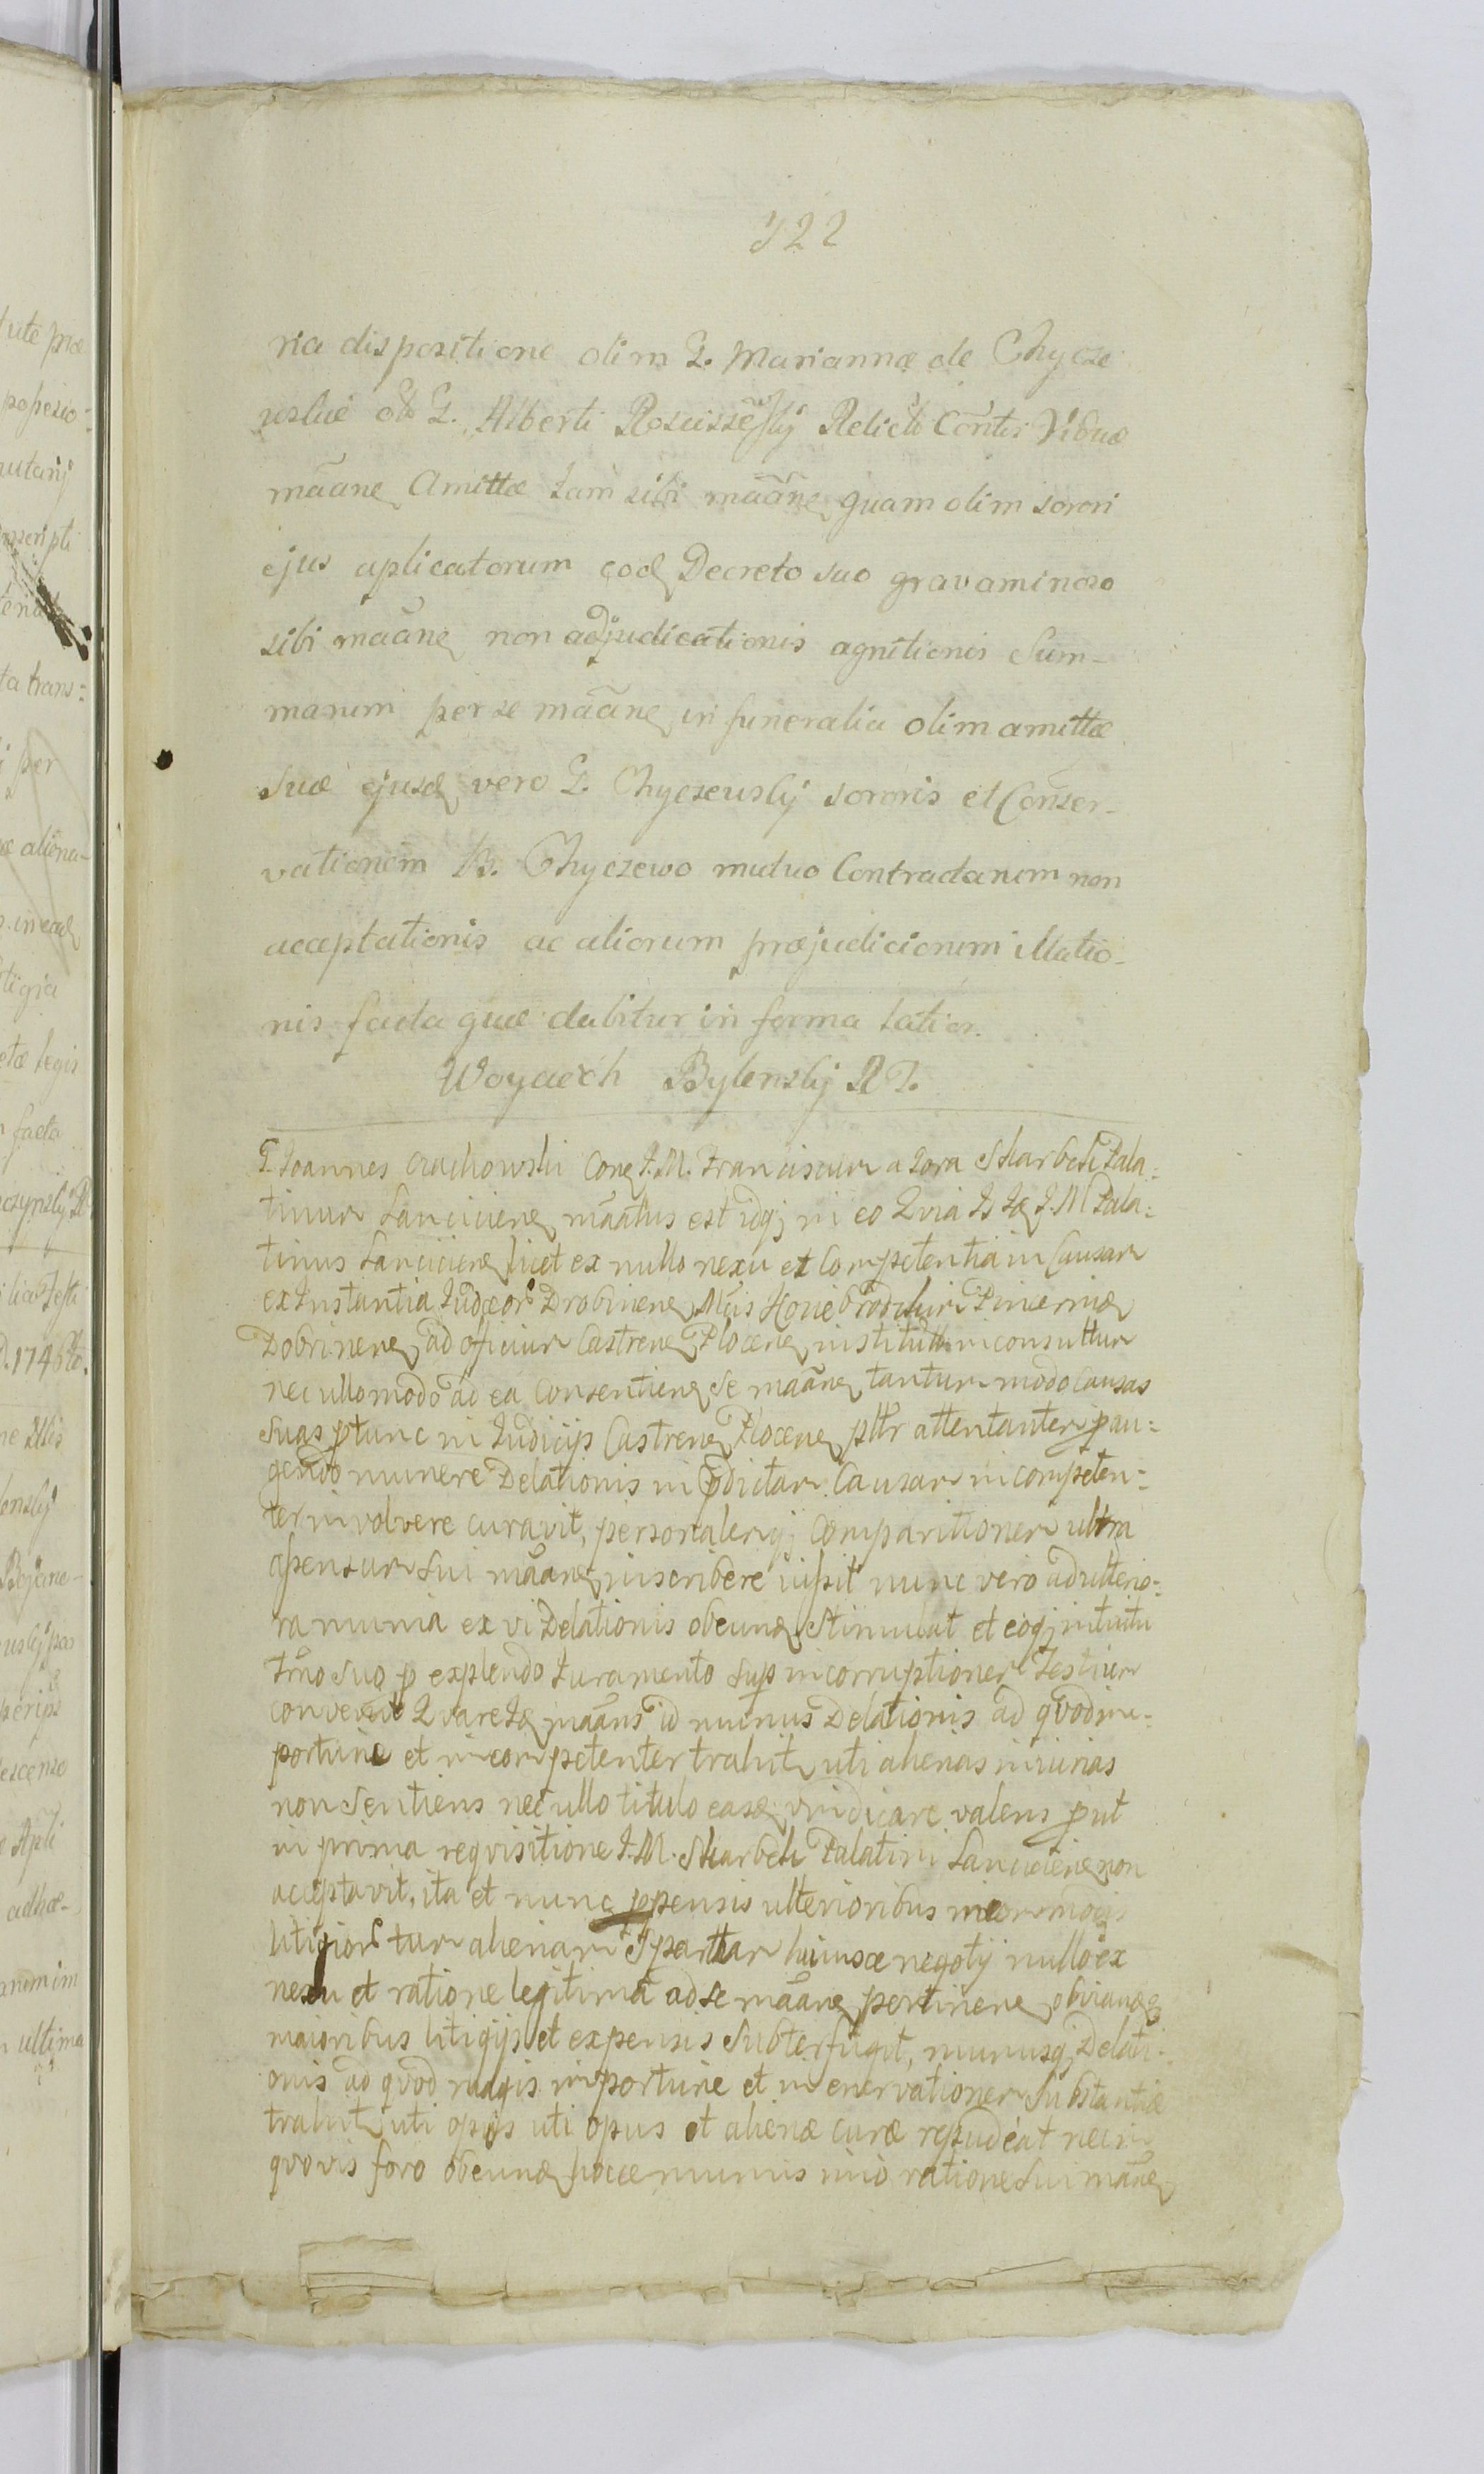 322
ria dispositione olim G. Mariannæ de Chycze
wskie olo G. Alberti Rosciszewskij Relictæ Contis Viduæ
mãane Amittæ tam sibi mãane quam olim sorori
ejus aplicatorum eod Decreto suo gravaminoso
sibi mãane non adjudicationis agnitionis Sum-
marum per se mãane in funeralia olim amittæ
Suæ ejusd vero G. Chyczewskij sororis et Conser-
vationem B. Chyczewo mutuo Contractarum non
acceptationis ac aliorum præjudiciorum illatio-
nis facta quæ dabitur in forma latior.
Woyciech Bylenskij RT.
G. Joannes Crachowski Cone J.M. Franciscum a Gora Skarbek Pala:
tinum Lanciciene mãatus est idq; in eo Qvia Is Id J.M Pala:
tinus Lanciciene licet ex nullo nexu et Competentia in Causam
ex Instantia Judæor Drobinene Mcis Pincernæ
Dobrinene ad officium Castrene Plocene inconsultum
nec ullo modo ad ea Consentiene se mãane tantum modo Causas
Suas ptunc in Judicijs Castrene Plocene plttr attentanter pau:
gendo munere Delationis in pdictam Causam incompeten:
ter involvere curavit, personalemq; Comparitionem ultra
apensum sui mãane inscribere iussit nunc vero ad ulterio:
ra munia ex vi Delationis obeund Stimulat et eoq; intuitu
tmo suo p explendo Juramento sup incorruptionem Testium
convenit Qvare Id mãans id munus Delationis ad qvod im:
portune et incompetenter trahit uti alienas iniurias
non Sentiens nec ullo titulo easd vindicare valens put
in prima reqvisitione J.M. Skarbek Palatini Lanciciene non
acceptavit, ita et nunc ppensis ulterioribus incommodis
litigior tum alienam Spectar huiusce negotij nullo ex
nexu et ratione legitima ad se mãane pertinene obviand
maioribus litigijs et expensis Subterfugit, munusq; Delati-
onis ad qvod magis importune et in enervationem Substantiæ
trahit uti opus uti opus et alienæ curæ repudeat nec in
qvovis foro obeund hocce munus imo ratione Sui mãane